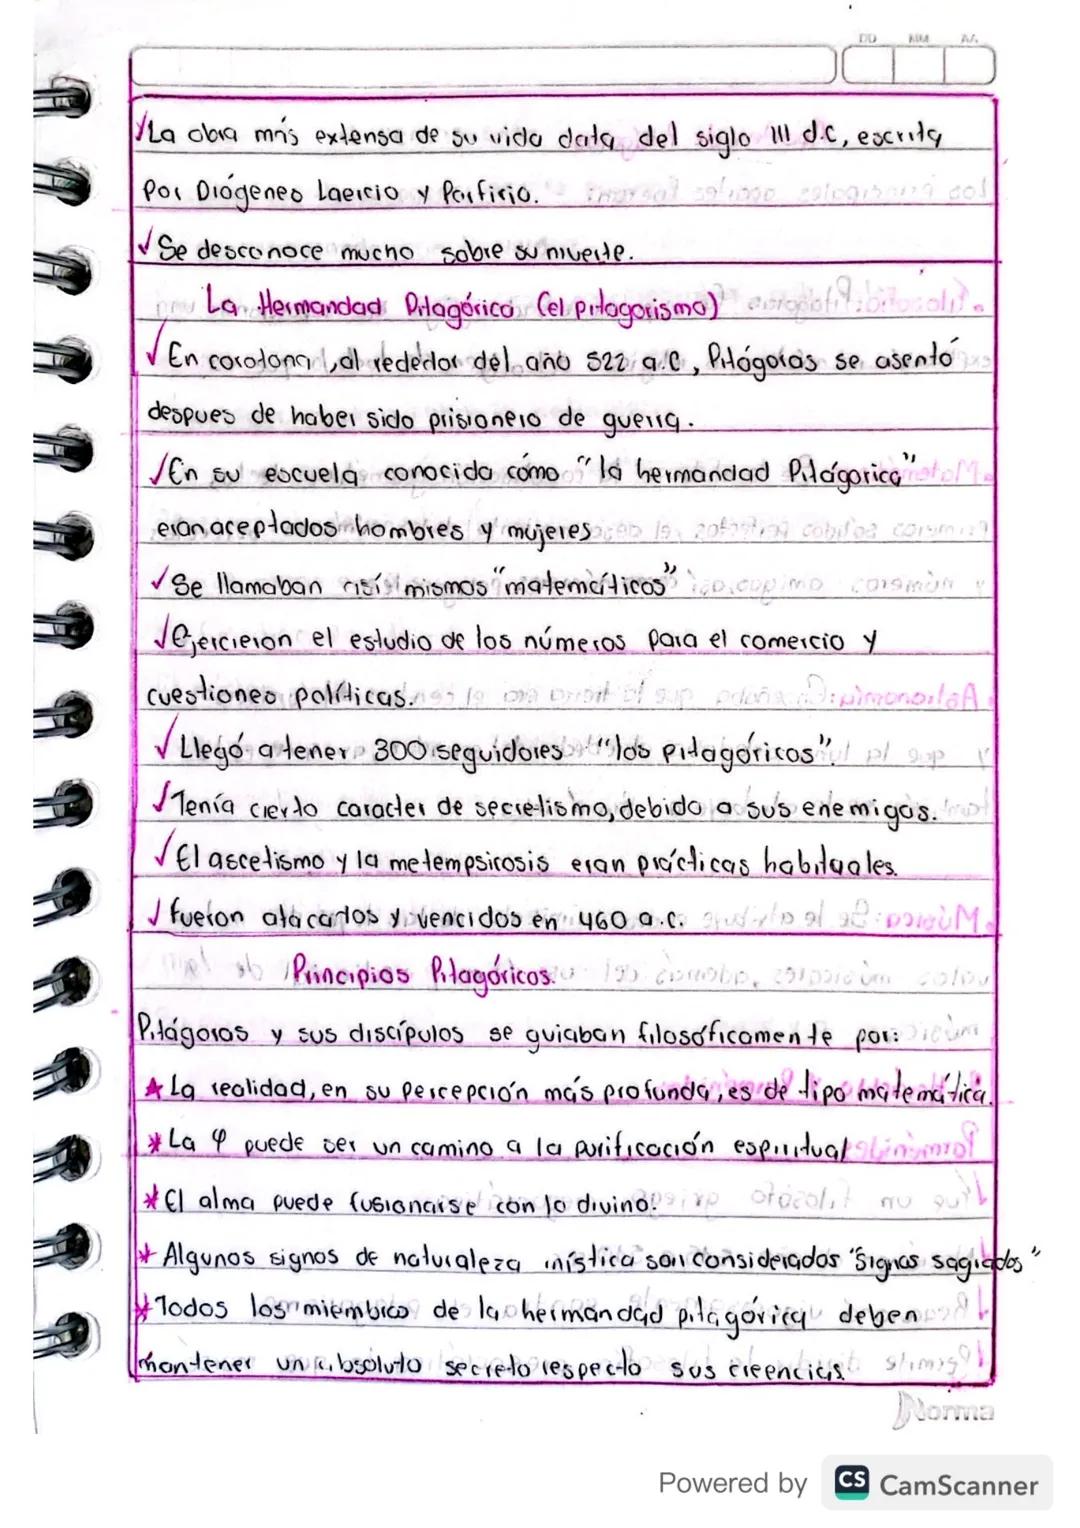 DD MM AA
✓La obra más extensa de su vida data del siglo III d.C, escrita
Por Diógenes Laercio y Porfirio.
✓Se desconoce mucho sobre su muerte.
La Hermandad Pitagórica (el pitagorismo)
✓En corotona, al rededor del año 522 a.C, Pitágoras se asentó
despues de haber sido prisionero de guerra.
✓En su escuela conocida cómo "la hermandad Pitágorica"
eran aceptados hombres y mujeres
✓Se llamaban así mismos "matemáticos"
✓Ejercieron el estudio de los números para el comercio y
cuestiones políticas.
✓Llegó a tener 300 seguidores "los pitagóricos"
✓Tenía cierto caracter de secretismo, debido a sus enemigos.
✓El ascetismo y la metempsicosis eran prácticas habituales.
✓fueron atacados y vencidos en 460 a.c.
Principios Pitagóricos.
Pitágoras y sus discípulos se guiaban filosóficamente por:
★La realidad, en su percepción más profunda, es de tipo matemática.
*La φ puede ser un camino a la purificación espiritual
*El alma puede fusionarse con lo divino.
*Algunos signos de naturaleza mística son considerados "signos sagrados"
*Todos los miembros de la hermandad pitagórica deben
mantener un absoluto secreto respecto sus creencias.
Norma
Powered by CS CamScanner